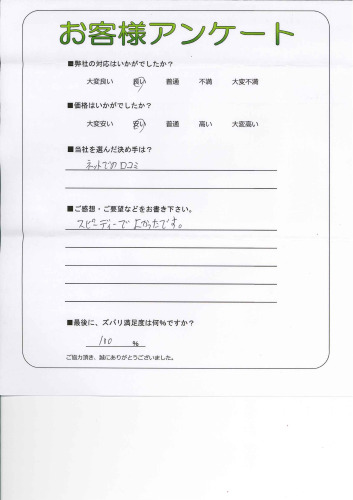 お客様アンケート
■弊社の対応はいかがでしたか？
大変良い 良い 普通 不満 大変不満
■価格はいかがでしたか？
大変安い 安い 普通 高い 大変高い
■当社を選んだ決め手は？
ネットでの口コミ
■ご感想・ご要望などをお書き下さい。
スピーディーでよかったです。
■最後に、ズバリ満足度は何%ですか？
100 %
ご協力頂き、誠にありがとうございました。